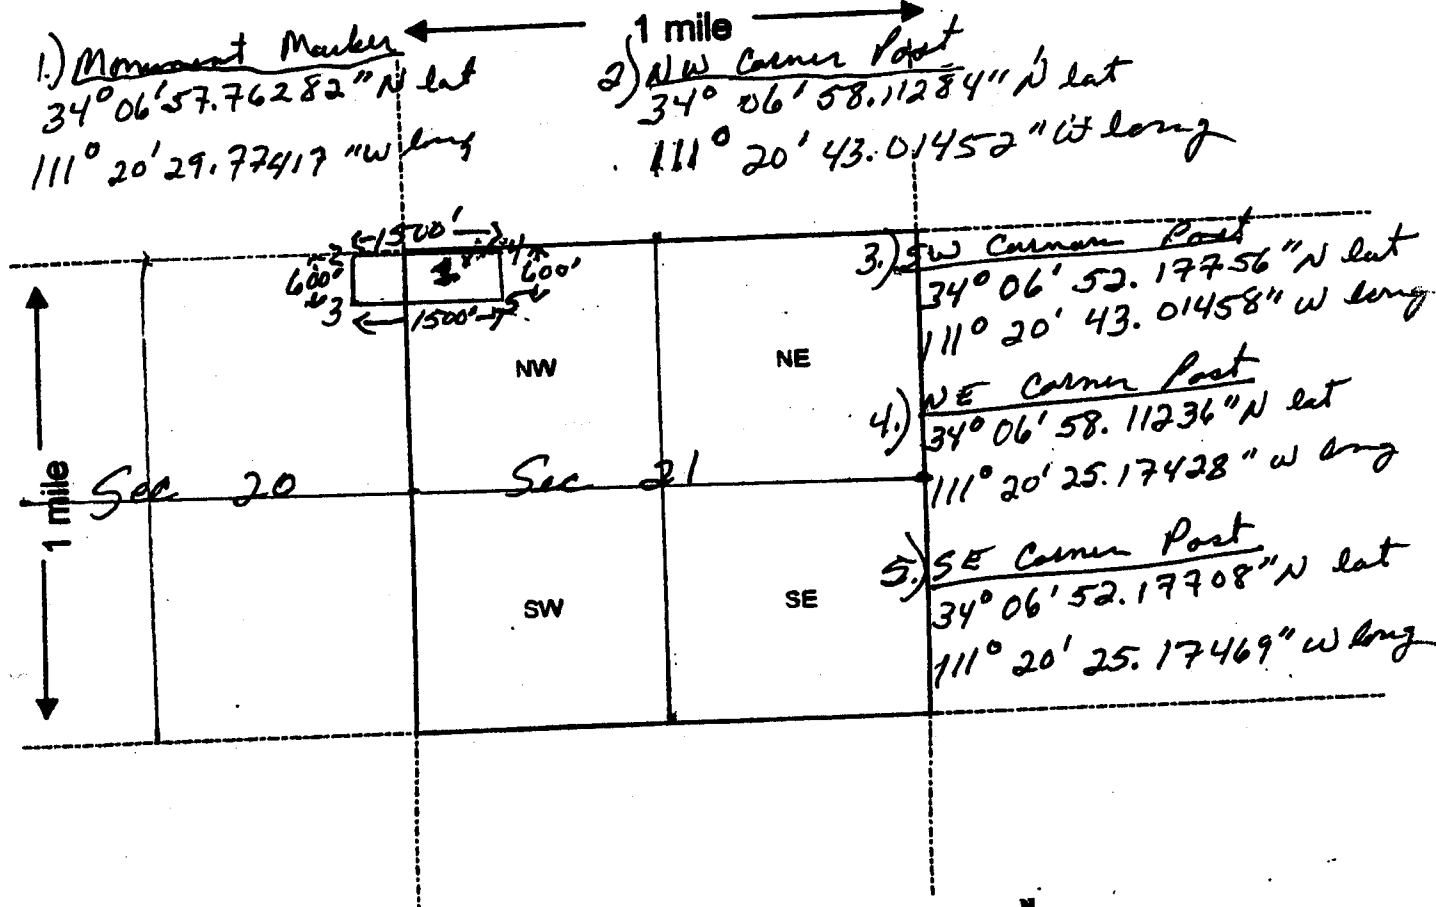 1 mile
1.) Monument Marker
34° 06' 57.76282" N lat
111° 20' 29.77417 "W long
2) NW Corner Post
34° 06' 58.11284" N lat
111° 20' 43.01452 " W long
1500'
600'
600'
3
1500'
5
NW
NE
3.) SW Corner Post
34° 06' 52.17756" N lat
111° 20' 43.01458" W long
4.) NE Corner Post
34° 06' 58.11236" N lat
111° 20' 25.17428" W long
1 mile
Sec 20
Sec 21
SW
SE
5.) SE Corner Post
34° 06' 52.17708" N lat
111° 20' 25.17469" W long
N